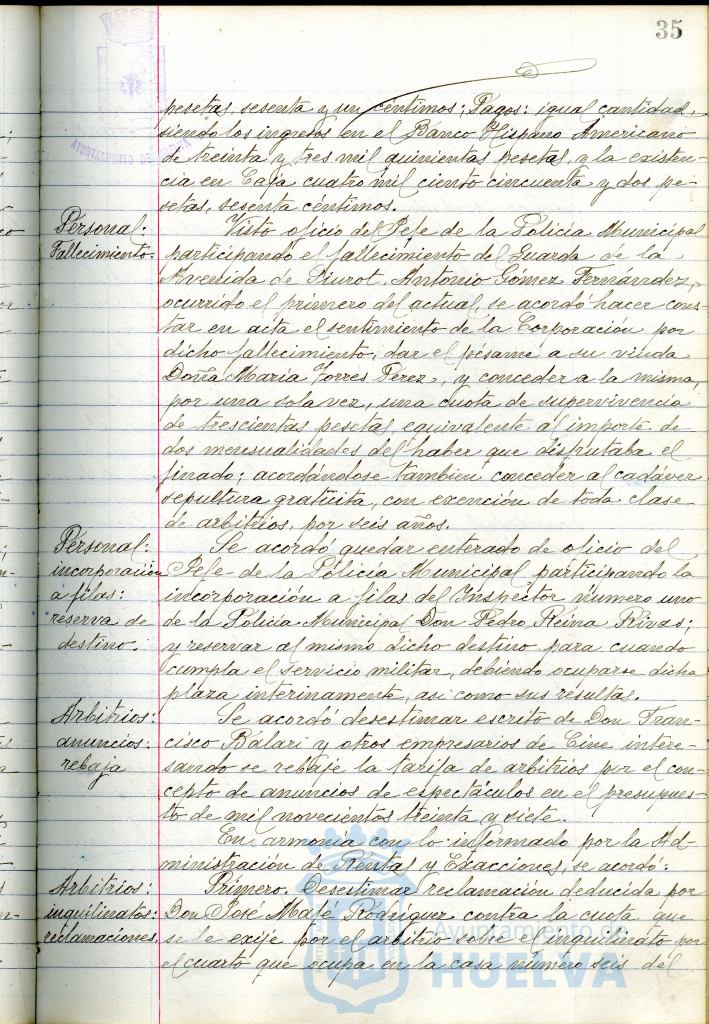 35
pesetas, sesenta y un céntimos; Pagos: igual cantidad,
siendo los ingresos en el Banco Hispano Americano
de treinta y tres mil quinientas pesetas, y la existen-
cia en Caja cuatro mil ciento cincuenta y dos pe-
setas, sesenta céntimos.
Personal:
Fallecimiento.
Visto oficio del Jefe de la Policía Municipal
participando el fallecimiento del Guarda de la
Avenida de Siurot, Antonio Gómez Fernández,
ocurrido el primero del actual, se acordó hacer cons-
tar en acta el sentimiento de la Corporación por
dicho fallecimiento, dar el pésame a su viuda
Doña María Torres Pérez, y conceder a la misma,
por una sola vez, una cuota de supervivencia
de trescientas pesetas, equivalente al importe de
dos mensualidades del haber que disfrutaba el
finado; acordándose también conceder al cadáver
sepultura gratuita, con exención de toda clase
de arbitrios, por seis años.
Personal:
incorporación
a filas:
reserva de
destino.
Se acordó quedar enterado de oficio del
Jefe de la Policía Municipal participando la
incorporación a filas del Inspector número uno
de la Policía Municipal Don Pedro Reina Rivas;
y reservar al mismo dicho destino para cuando
cumpla el servicio militar, debiendo ocuparse dicha
plaza interinamente, así como sus resultas.
Arbitrios:
anuncios:
rebaja
Se acordó desestimar escrito de Don Fran-
cisco Balari y otros empresarios de Cine intere-
sando se rebaje la tarifa de arbitrios por el con-
cepto de anuncios de espectáculos en el presupues-
to de mil novecientos treinta y siete.
En armonía con lo informado por la Ad-
ministración de Rentas y Exacciones, se acordó:
Arbitrios:
inquilinatos:
reclamaciones.
Primero. Desestimar reclamación deducida por
Don José Mafé Rodríguez contra la cuota que
se le exije por el arbitrio sobre el inquilinato por
el cuarto que ocupa en la casa número seis del
Ayuntamiento de
HUELVA